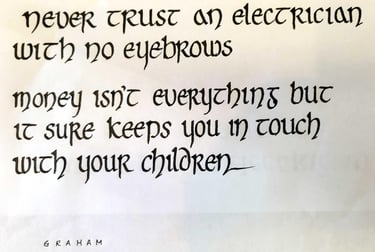 never trust an electrician
with no eyebrows
money isn't everything but
it sure keeps you in touch
with your children
GRAHAM